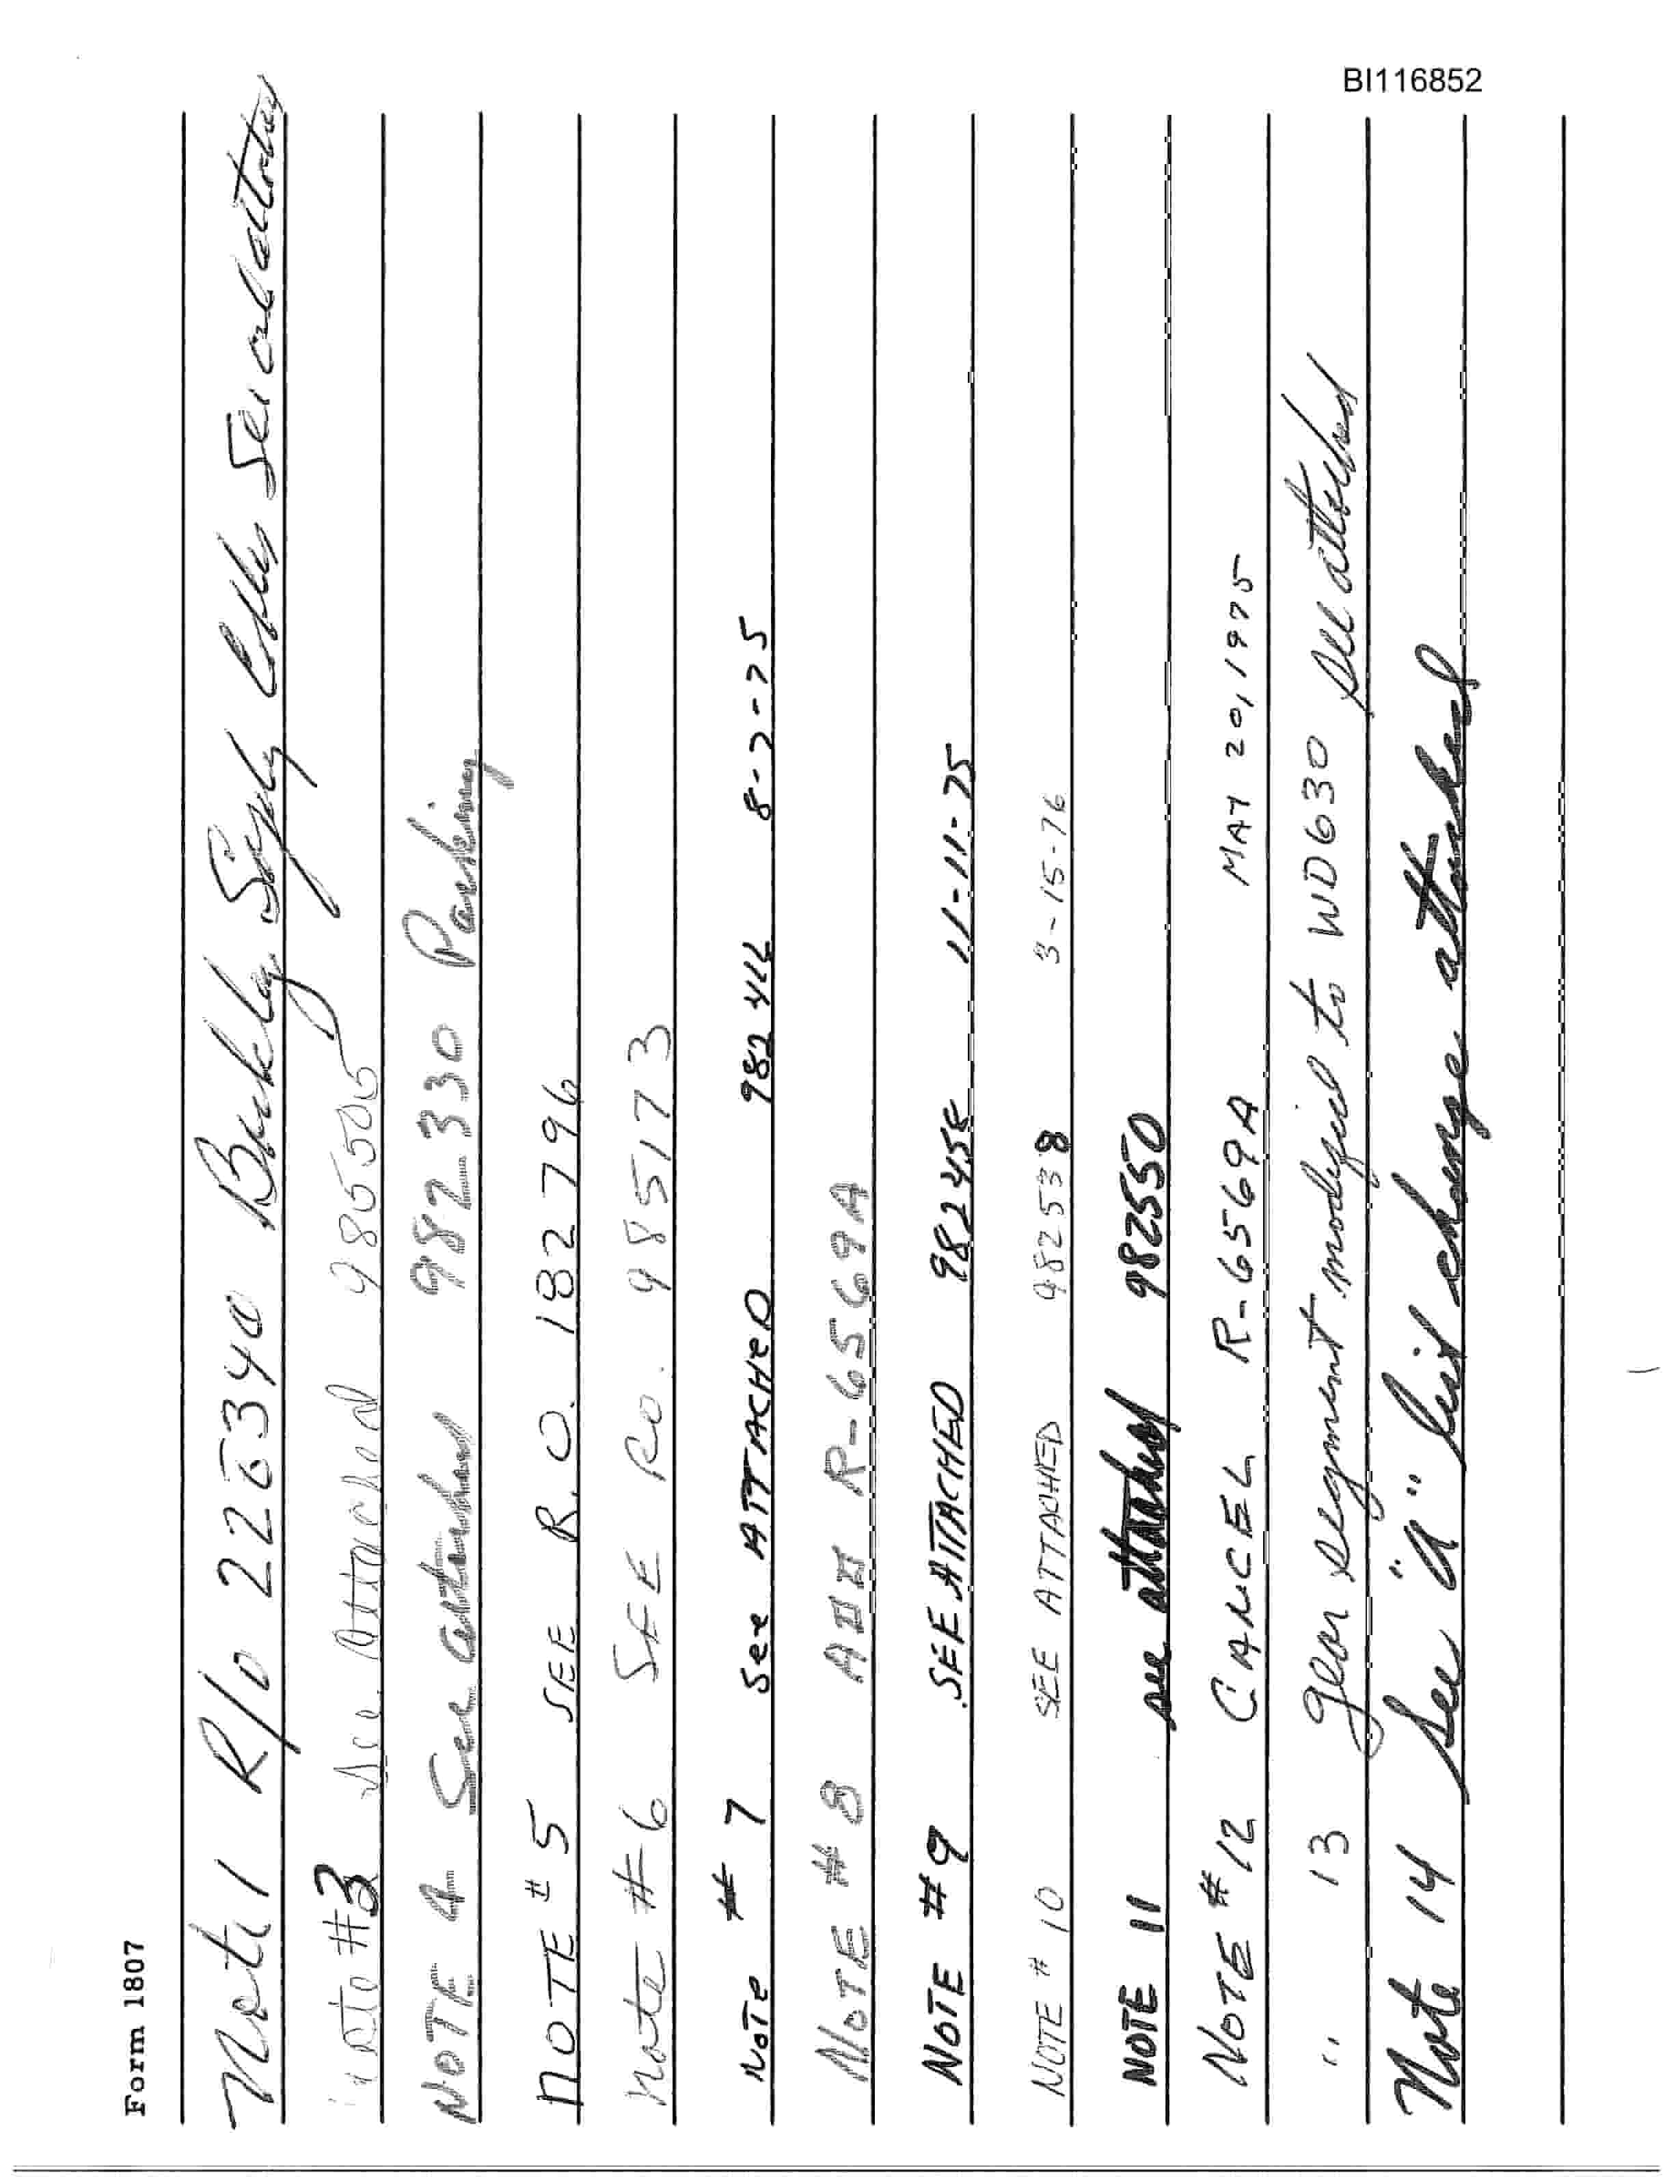 BI116852
Form 1807
Note 1 R/O 226340
Note #3 See Attached 985505
NOTE 4 See attached 982330
NOTE #5 SEE R.O. 182796
Note #6 SEE RO. 98517 3
NOTE # 7 See ATTACHED 982 8-7-75
NOTE # 8 R-6569A
NOTE #9 SEE ATTACHED 11-11-75
NOTE # 10 SEE ATTACHED 982538 3-15-76
NOTE 11 see attached 982550
NOTE #12 CANCEL R-6569A MAY 20, 1975
" 13 gear segment modified to WD630 see attached
Note 14 See "a" list change attached